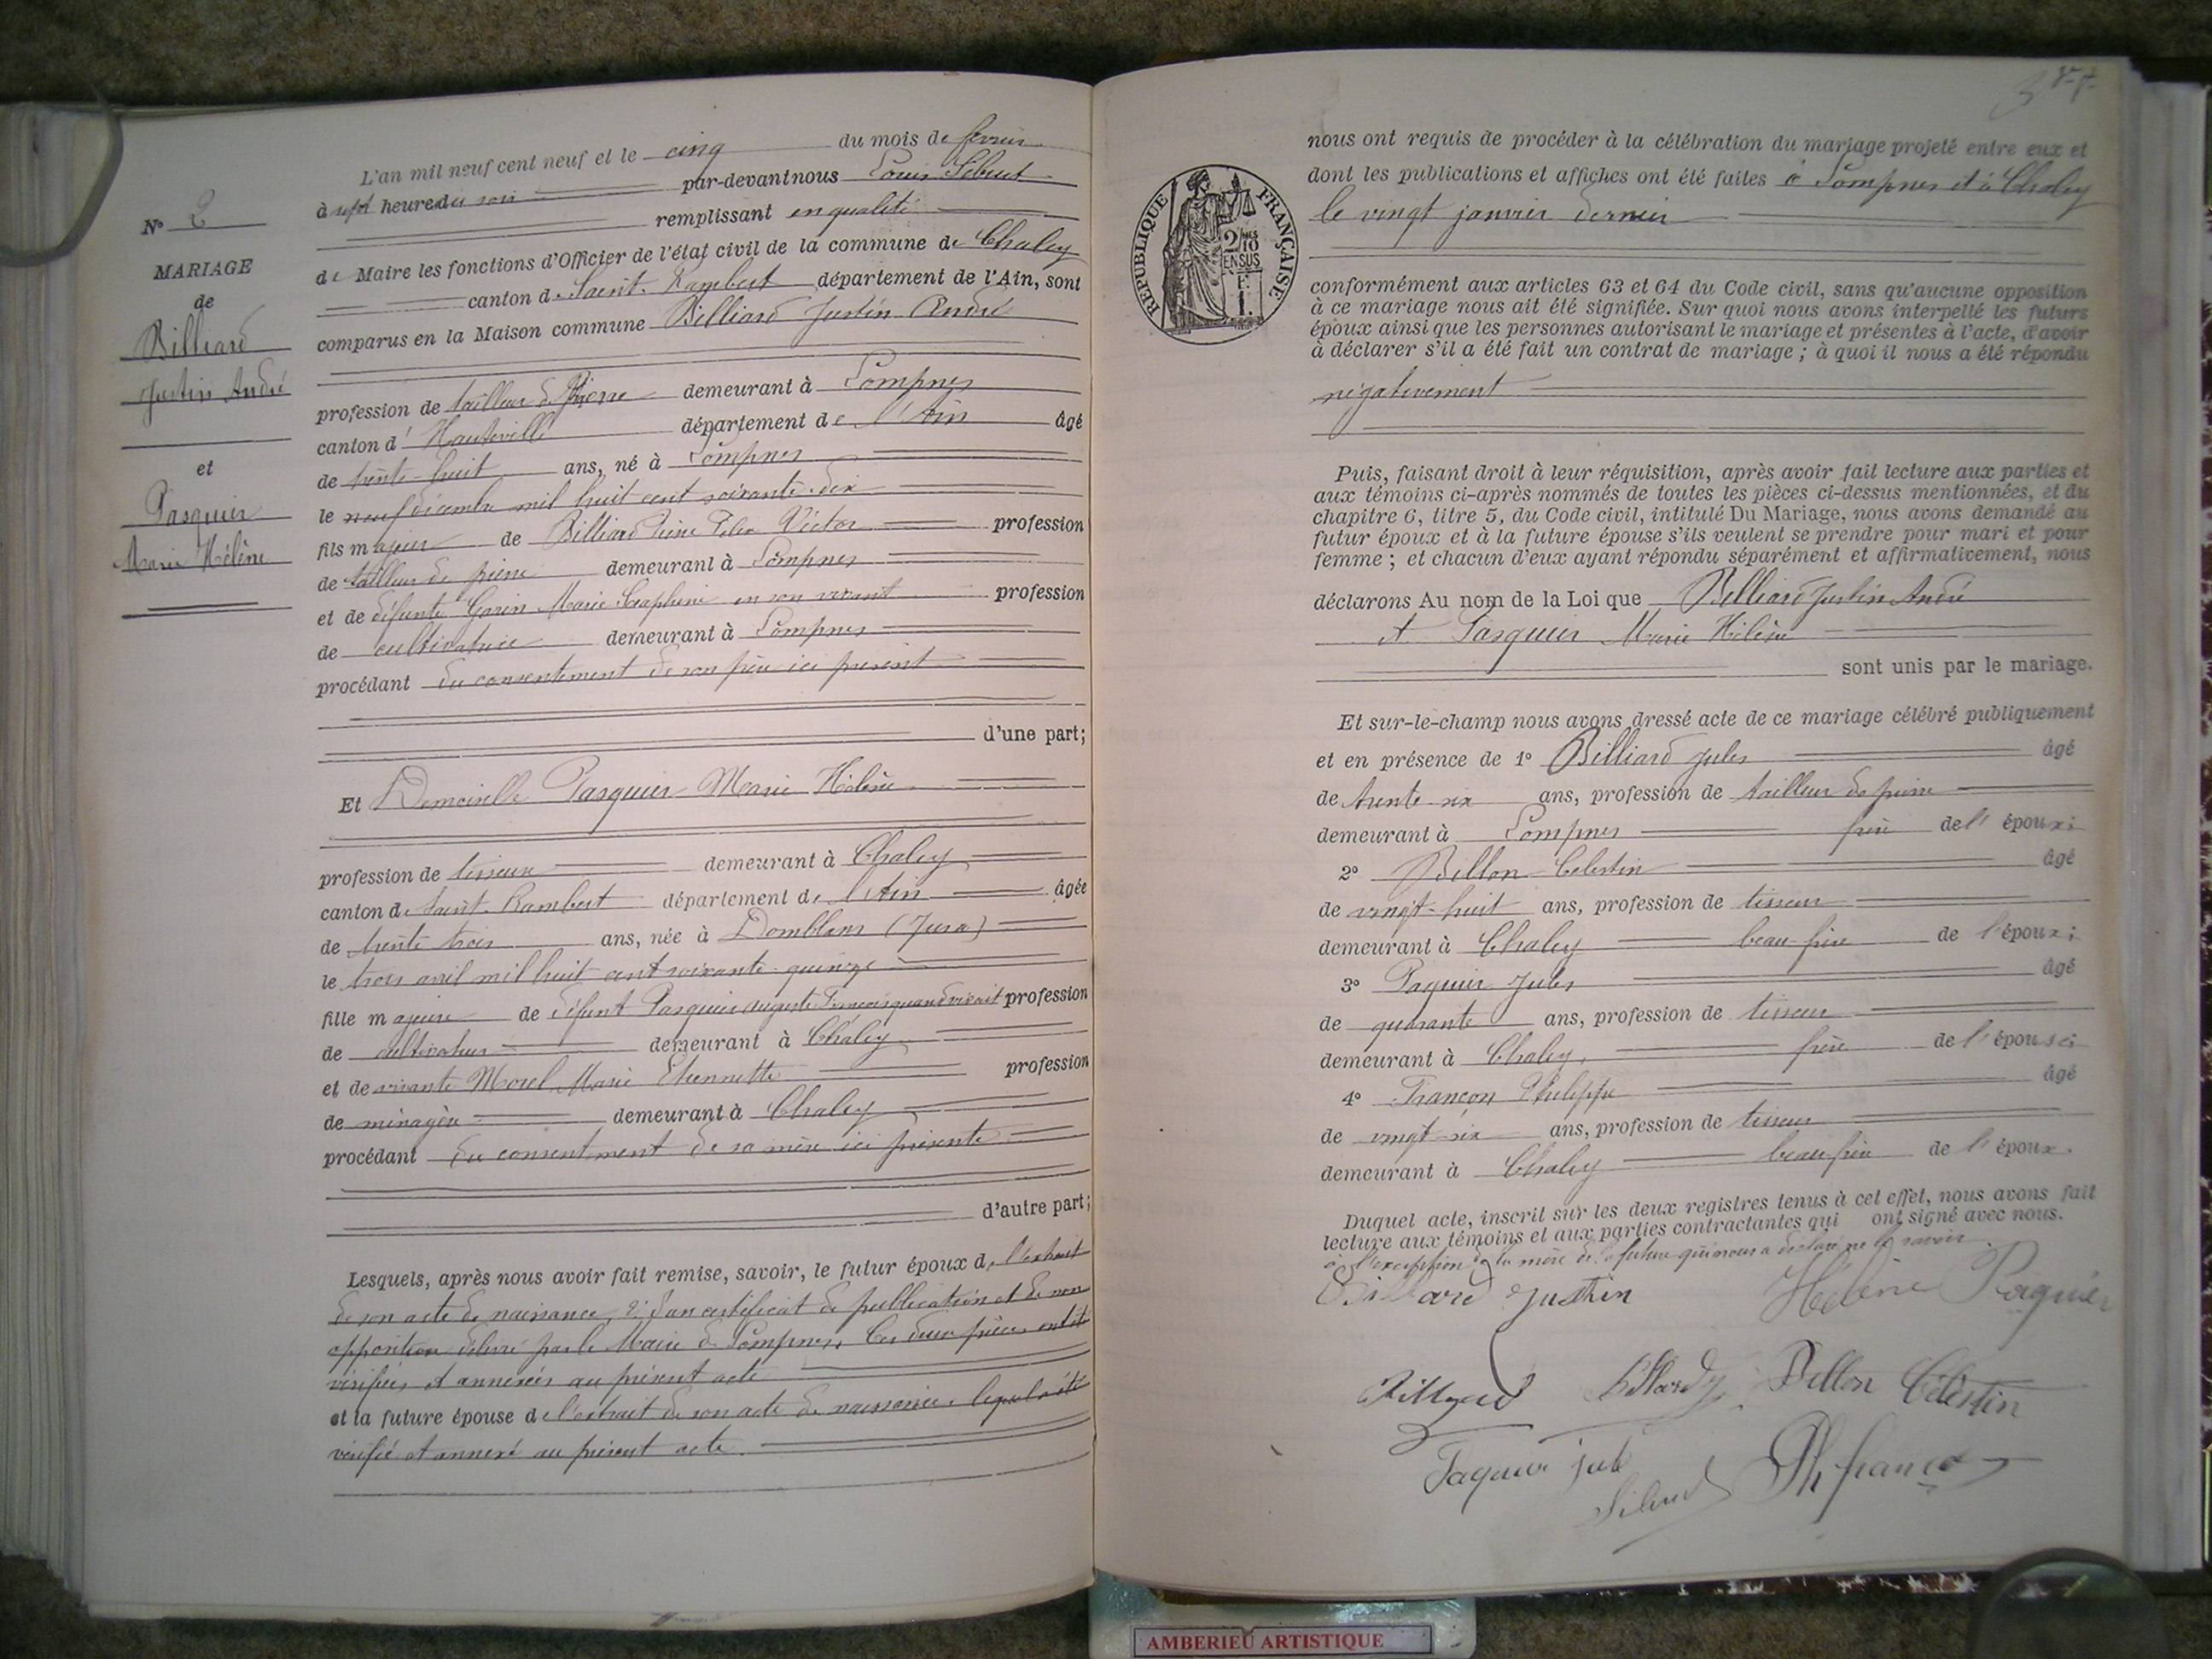 L'an mil neuf cent neuf et le cinq du mois de février
à sept heures du soir par-devant nous Louis
remplissant en qualité
de Maire les fonctions d'Officier de l'état civil de la commune de Chaley
canton de Saint-Rambert département de l'Ain, sont
comparus en la Maison commune Billiard Justin André
N° 2
MARIAGE
de
Billiard
Justin André
et
Pasquier
Marie Hélène
profession de tailleur de Pierre demeurant à Lompnes
canton d'Hauteville département de l'Ain âgé
de trente-huit ans, né à Lompnes
le neuf décembre mil huit cent soixante-dix
fils majeur de Billiard Victor profession
de tailleur de pierre demeurant à Lompnes
et de défunte Marie Séraphine en son vivant profession
de cultivatrice demeurant à Lompnes
procédant du consentement de son père ici présent
d'une part;
Et Demoiselle Pasquier Marie Hélène
profession de tisseuse demeurant à Chaley
canton de Saint-Rambert département de l'Ain âgée
de trente trois ans, née à Domblans (Jura)
le trois avril mil huit cent soixante-quinze
fille majeure de défunt Pasquier Auguste François quand vivait profession
de cultivateur demeurant à Chaley
et de vivante Morel Marie Etiennette profession
de ménagère demeurant à Chaley
procédant du consentement de sa mère ici présente
d'autre part;
Lesquels, après nous avoir fait remise, savoir, le futur époux de l'extrait
de son acte de naissance, 2° d'un certificat de publication et de non
opposition délivré par le Maire de Lompnes. Ces deux pièces ont été
vérifiées et annexées au présent acte
et la future épouse de l'extrait de son acte de naissance. lequel a été
vérifié et annexé au présent acte.
REPUBLIQUE FRANÇAISE
2/10
EN SUS
F.
1.
nous ont requis de procéder à la célébration du mariage projeté entre eux et
dont les publications et affiches ont été faites à Lompnes et à Chaley
le vingt janvier dernier
conformément aux articles 63 et 64 du Code civil, sans qu'aucune opposition
à ce mariage nous ait été signifiée. Sur quoi nous avons interpellé les futurs
époux ainsi que les personnes autorisant le mariage et présentes à l'acte, d'avoir
à déclarer s'il a été fait un contrat de mariage; à quoi il nous a été répondu
négativement
Puis, faisant droit à leur réquisition, après avoir fait lecture aux parties et
aux témoins ci-après nommés de toutes les pièces ci-dessus mentionnées, et du
chapitre 6, titre 5, du Code civil, intitulé Du Mariage, nous avons demandé au
futur époux et à la future épouse s'ils veulent se prendre pour mari et pour
femme; et chacun d'eux ayant répondu séparément et affirmativement, nous
déclarons Au nom de la Loi que Billiard Justin André
et Pasquier Marie Hélène
sont unis par le mariage.
Et sur-le-champ nous avons dressé acte de ce mariage célébré publiquement
et en présence de 1° Billiard Jules âgé
de trente-six ans, profession de tailleur de pierre
demeurant à Lompnes frère de l'époux;
2° Billon Célestin âgé
de vingt-huit ans, profession de tisseur
demeurant à Chaley beau-frère de l'époux;
3° Paquier Jules âgé
de quarante ans, profession de tisseur
demeurant à Chaley, frère de l'épouse;
4° Françon Philippe âgé
de vingt-six ans, profession de tisseur
demeurant à Chaley beau frère de l'époux.
Duquel acte, inscrit sur les deux registres tenus à cet effet, nous avons fait
lecture aux témoins et aux parties contractantes qui ont signé avec nous.
à l'exception de la mère de la future qui nous a déclaré ne le savoir
Billiard Justin Hélène Paquier
Billiard Billiard J. Billon Célestin
Paquier jule Ph françon
AMBERIEU ARTISTIQUE